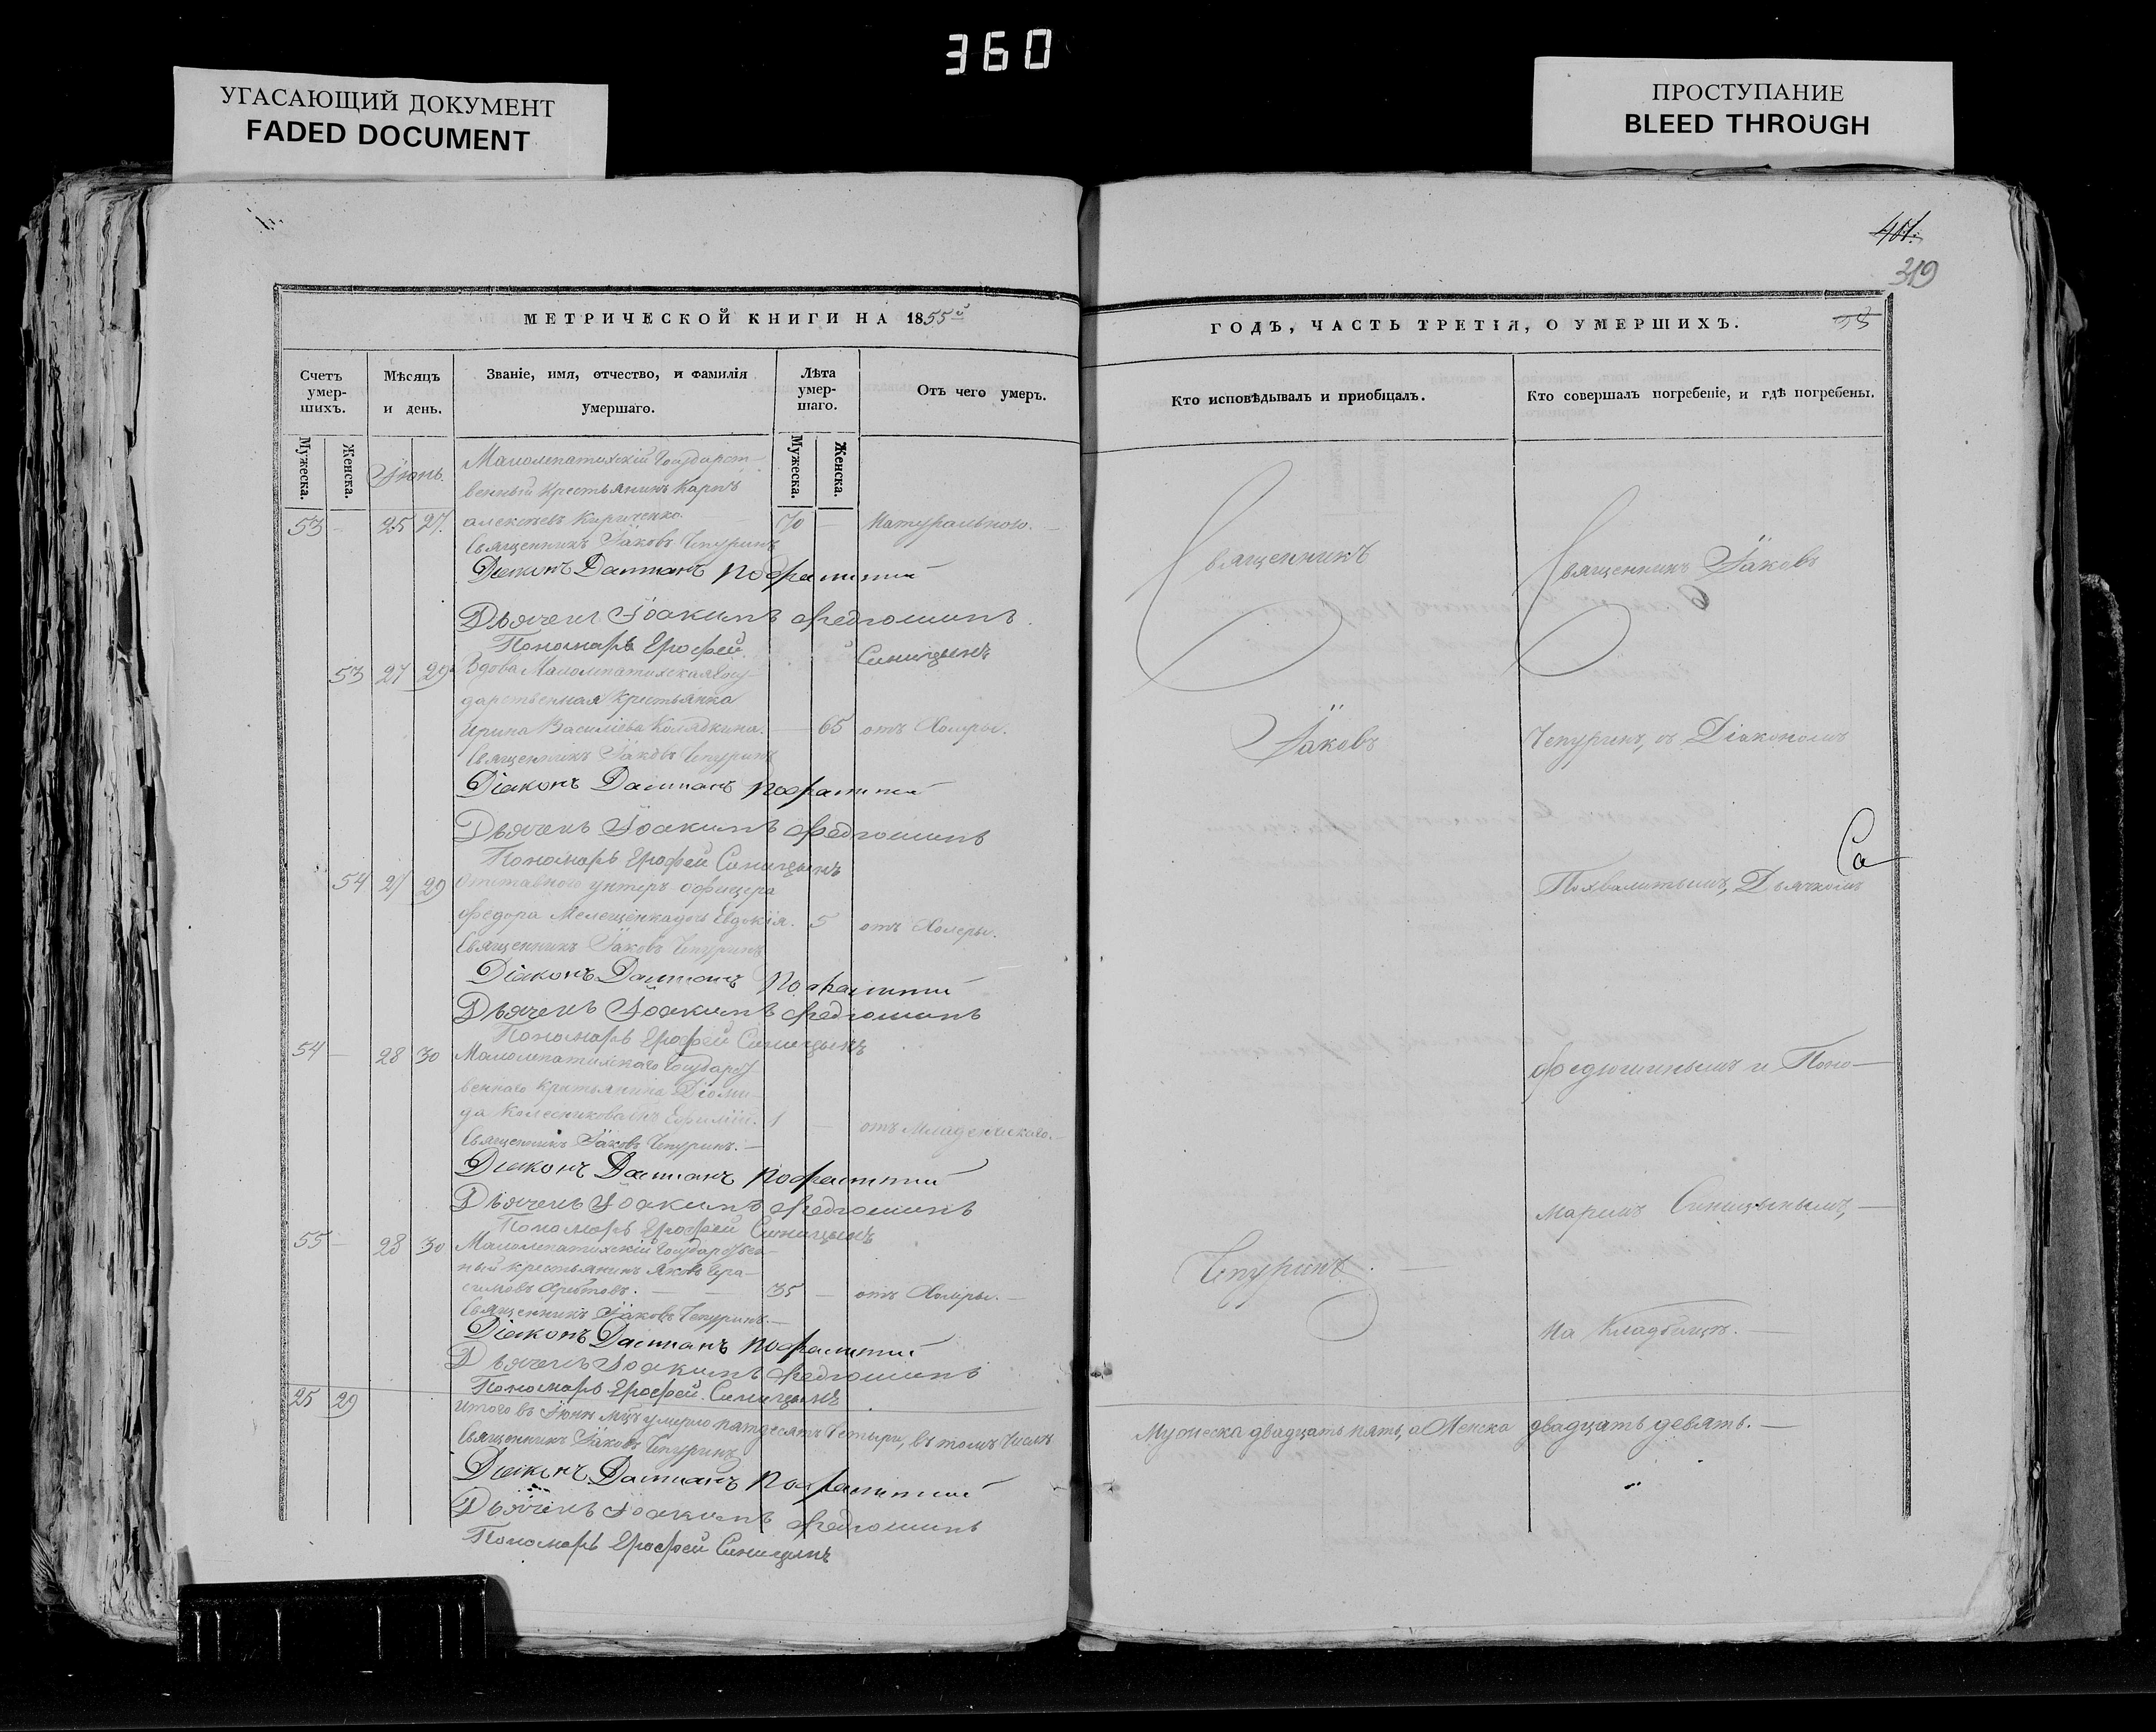 360
УГАСАЮЩИЙ ДОКУМЕНТ
FADED DOCUMENT
ПРОСТУПАНИЕ
BLEED THROUGH
319
МЕТРИЧЕСКОЙ КНИГИ НА 1855й
Счетъ умер-шихъ.
Мужеска.
Женска.
Мѣсяцъ и день.
Званіе, имя, отчество, и фамилія умершаго.
Лѣта умер-шаго.
Мужеска.
Женска.
Отъ чего умеръ.
Іюнь.
Малолепатихскій Государст-
венный крестьянинъ Карпъ
53 - 25 27. Алексѣевъ Кириченко. 70 - Натурального. -
Священникъ Іаковъ Чепуринъ
Діаконъ Даміанъ
Дьячекъ Іоакимъ Федюшинъ.
Пономарь Ерофей Синицынъ
53 27 29 Вдова Малолепатихская Госу-
дарственная крестьянка
Ирина Василіева Колядкина. - 65 отъ Холеры.
Священникъ Іаковъ Чепуринъ
Діаконъ Даміанъ
Дьячекъ Іоакимъ Федюшинъ
Пономарь Ерофей Синицынъ
54 27 29 Отставного унтеръ-офицера
Федора Мелещенка дочь Евдокія. 5 отъ Холеры.
Священникъ Іаковъ Чепуринъ
Діаконъ Даміанъ
Дьячекъ Іоакимъ Федюшинъ
Пономарь Ерофей Синицынъ
54 - 28 30 Малолепатихскаго Государст
веннаго крестьянина Діоми-
да Колесникова сынъ 1 - отъ Младенческаго. -
Священникъ Іаковъ Чепуринъ. -
Діаконъ Даміанъ
Дьячекъ Іоакимъ Федюшинъ
Пономарь Ерофей Синицынъ
55 - 28 30 Малолепатихскій Государствен-
ный крестьянинъ Яковъ Гера-
симовъ 35 - отъ Холеры. -
Священникъ Іаковъ Чепуринъ. -
Діаконъ Даміанъ
Дьячекъ Іоакимъ Федюшинъ
Пономарь Ерофей Синицынъ
25 29
Итого въ Іюнѣ мцѣ умерло пятдесятъ четыри, въ томъ числѣ
Священникъ Іаковъ Чепуринъ
Діаконъ Даміанъ
Дьячекъ Іоакимъ Федюшинъ
Пономарь Ерофей Синицынъ
ГОДЪ, ЧАСТЬ ТРЕТІЯ, О УМЕРШИХЪ.
Кто исповѣдывалъ и пріобщалъ.
Кто совершалъ погребеніе, и гдѣ погребены.
Священникъ
Іаковъ
Чепуринъ. -
Священникъ Іаковъ
Чепуринъ, съ Діакономъ
Похвалитымъ, Дьячкомъ
Федюшинымъ и Поно-
маремъ Синицынымъ, -
На Кладбищѣ. -
Мужеска двадцать пять, а Женска двадцать девять. -